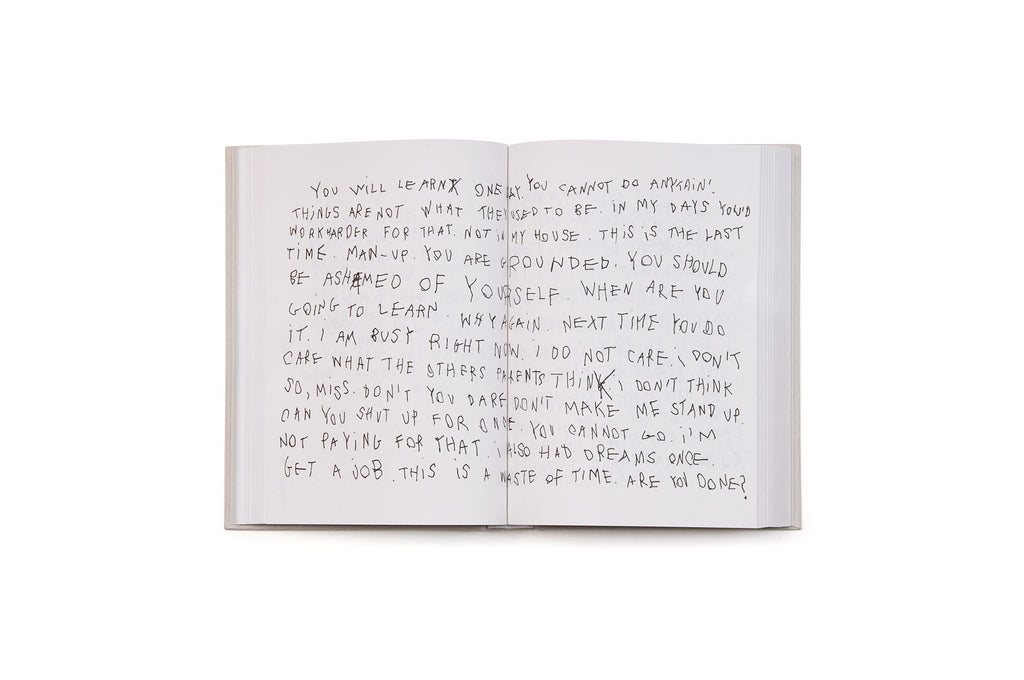 YOU WILL LEARN ONE DAY. YOU CANNOT DO
THINGS ARE NOT WHAT THEY USED TO BE. IN MY DAYS YOU'D
WORK HARDER FOR THAT. NOT IN MY HOUSE. THIS IS THE LAST
TIME. MAN-UP. YOU ARE GROUNDED. YOU SHOULD
BE ASHAMED OF YOURSELF. WHEN ARE YOU
GOING TO LEARN. WHY AGAIN. NEXT TIME YOU DO
IT. I AM BUSY RIGHT NOW. I DO NOT CARE. I DON'T
CARE WHAT THE OTHERS PARENTS THINK. I DON'T THINK
SO, MISS. DON'T YOU DARE. DON'T MAKE ME STAND UP.
CAN YOU SHUT UP FOR ONCE. YOU CANNOT GO. I'M
NOT PAYING FOR THAT. I ALSO HAD DREAMS ONCE.
GET A JOB. THIS IS A WASTE OF TIME. ARE YOU DONE?